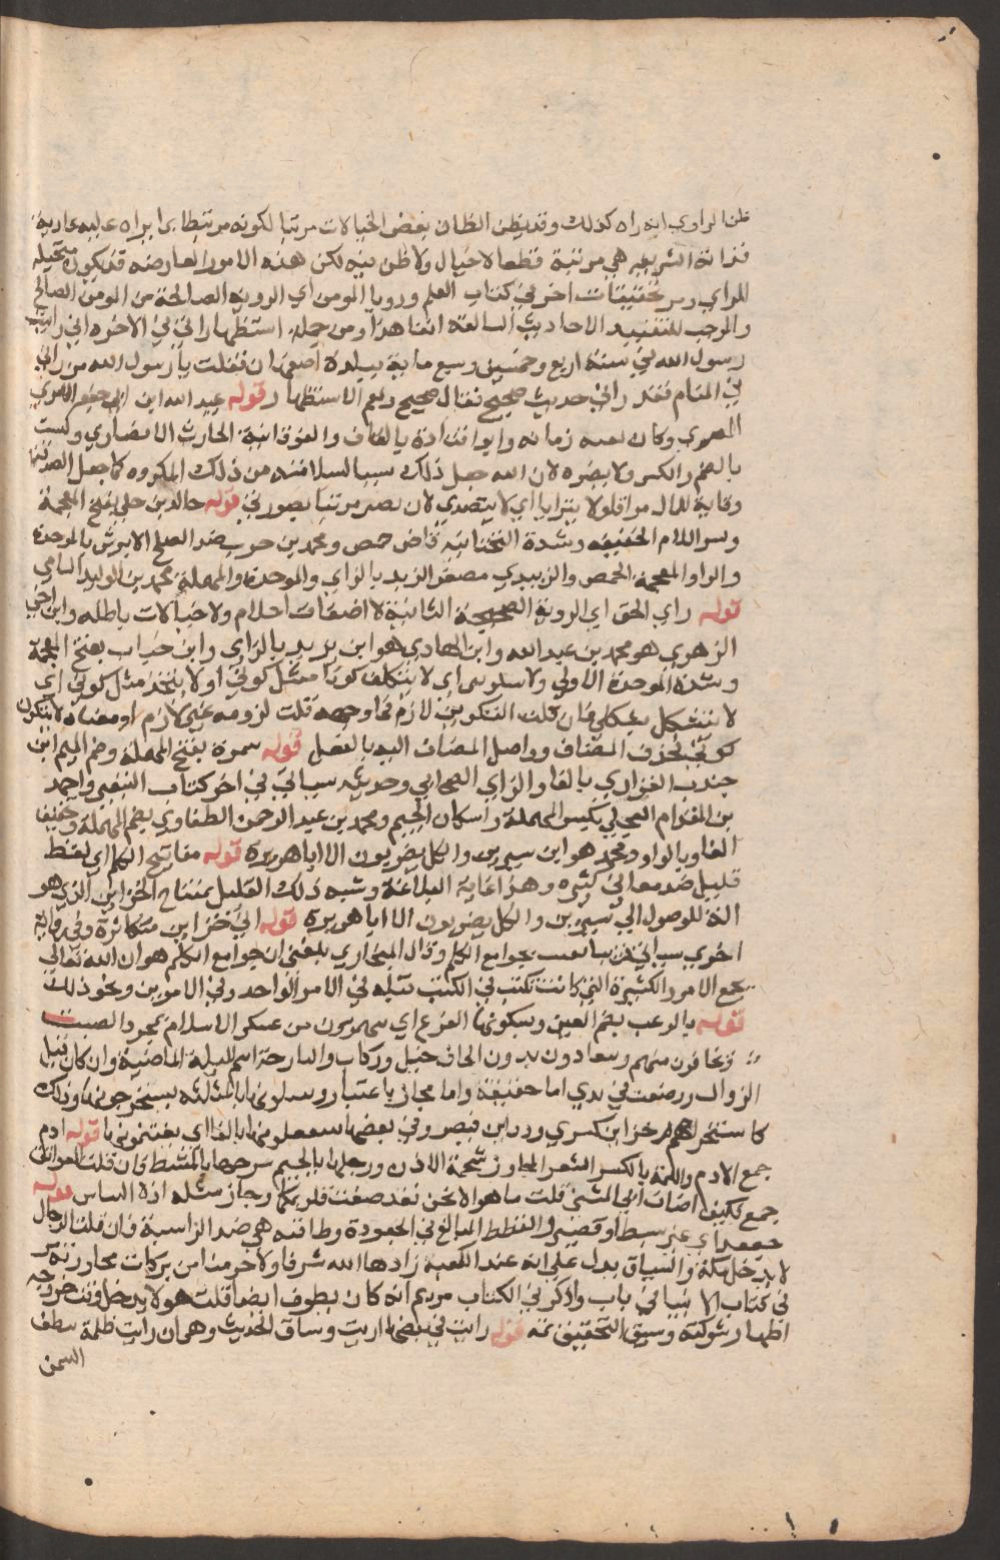 ظن الراوي انه راه كذلك وقد يظن الظان بعض الخيالات مرتبا لكونه مرتبطا بما يراه
فذاته الشريفه هي مرئية قطعا لا خيال ولا ظن فيه لكن هذه الامور العارضه قد يكون متخيله
للراي ومر تحقيقات اخر في كتاب العلم ورويا المومن اي الروية الصالحة من المومن الصالح
والموجب للتقييد الاحاديث السالفة انفا هذا ومن جملة استظهاراتي في الاخره اني رايت
رسول الله في سنة اربع وخمسين وسبع ماية ببلدة اصفهان فقلت يا رسول الله من راني
في المنام فقد راني حديث صحيح فقال صحيح ونعم الاستظهار قوله عبد الله ابن ابي جعفر الاموي
المصري وكان فقيه زمانه وابو قتادة بالقاف والفوقانية الحارث الانصاري وليستعذ
بالضم والكسر ولا يضره لان الله جعل ذلك سببا لسلامته من ذلك المكروه كما جعل الصدقة
وقاية للمال ولا يترايا اي لا يتصدي لان يصير مرئيا بصورتي قوله خالد بن خلي بفتح المعجمة
وكسر اللام الخفيفه وشدة التحتانية قاضي حمص ومحمد بن حرب ضد الصلح الابرش بالموحدة
والرا والمعجمة الحمصي والزبيدي مصغر الزبد بالزاي والموحدة والمهملة محمد بن الوليد الشامي
قوله راي الحق اي الروية الصحيحة الثابتة لا اضغاث احلام ولا خيالات باطله وابن اخي
الزهري هو محمد بن عبد الله وابن الهادي هو ابن يزيد بالزاي وابن خباب بفتح المعجمة
وشدة الموحدة الاولي ولا يتكونني اي لا يتكلف كونا مثل كوني او لا يتخذ مثل كوني اي
لا يتشكل بشكلي فان قلت التكوين لازم فما وجهه قلت لزومه غير لازم او معناه لا يتكون
كوني فحذف المضاف وواصل المضاف اليه بالفعل قوله سمرة بفتح المهملة وضم الميم ابن
جندب الفزاري بالفا والزاي الصحابي وحديثه سياتي في اخر كتاب التعبير واحمد
بن المقدام العجلي بكسر المهملة واسكان الجيم ومحمد بن عبد الرحمن الطفاوي بضم المهملة وخفيف
الفا وبالواو ومحمد هو ابن سيرين والكل بصريون الا ابا هريرة قوله مفاتيح الكلم اي لفظ
قليل ضد معاني كثيره وهذا غاية البلاغة وشبه ذلك القليل بمفتاح الخزاين الذي هو
الة للوصول الي سيرين والكل بصريون الا ابا هريرة قوله الي خزاين متكاثرة وفي رواية
اخري سياتي قريبا بعثت بجوامع الكلم وقال البخاري بلغني ان جوامع الكلم هو ان الله تعالي
يجمع الامور الكثيرة التي كانت تكتب في الكتب قبله في الامر الواحد وفي الامرين ونحو ذلك
قوله بالرعب بضم العين وسكونها الفزع اي ينهزمون من عسكر الاسلام بمجرد الصيت
ويخافون منهم وينقادون بدون ايجاف خيل وركاب والبارحة اسم لليلة الماضية وان كان قبل
الزوال ووضعت في يدي اما حقيقة واما مجاز باعتبار بالمثلثة يستخرجونها وذلك
كاستخراجهم خزاين كسري ودفاين قيصر وفي بعضها بالفا اي يغتنمونها قوله ادم
جمع الادم واللمة بالكسر الشعر المجاوز شحمة الاذن ورجلها بالجيم سرحها بالمشط فان قلت العواتق
جمع فكيف اضاف الي المثني قلت ما هو الا نحو فقد صغت قلوبكما وجاز مثله اذ لا التباس قوله
جعد اي غير سبط او قصير والقطط المبالغ في الجعودة وطافية هي ضد الراسبة فان قلت الدجال
لا يدخل مكة والسياق يدل علي انه عند الكعبة زادها الله شرفا ولا حرمنا من بركات
في كتاب الانبيا في باب واذكر في الكتاب مريم انه كان يطوف ايضا قلت هو لا يدخل وقت خروجه
اظهار شوكته وسبق التحقيق ثمه قوله رايت في بعضها اريت وساق الحديث وهو ان رايت ظلة تنطف
السمن